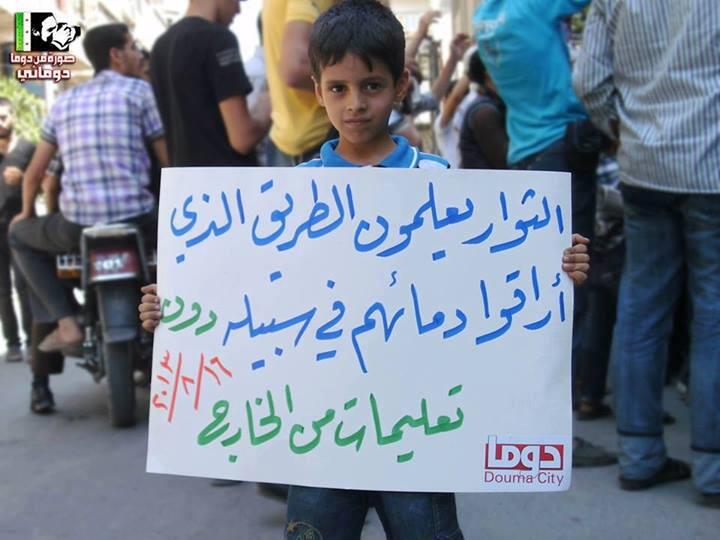 صورة من دوما
دوماني
الثوار يعلمون الطريق الذي
أراقوا دمائهم في سبيله دون
تعليمات من الخارج
دوما
Douma City